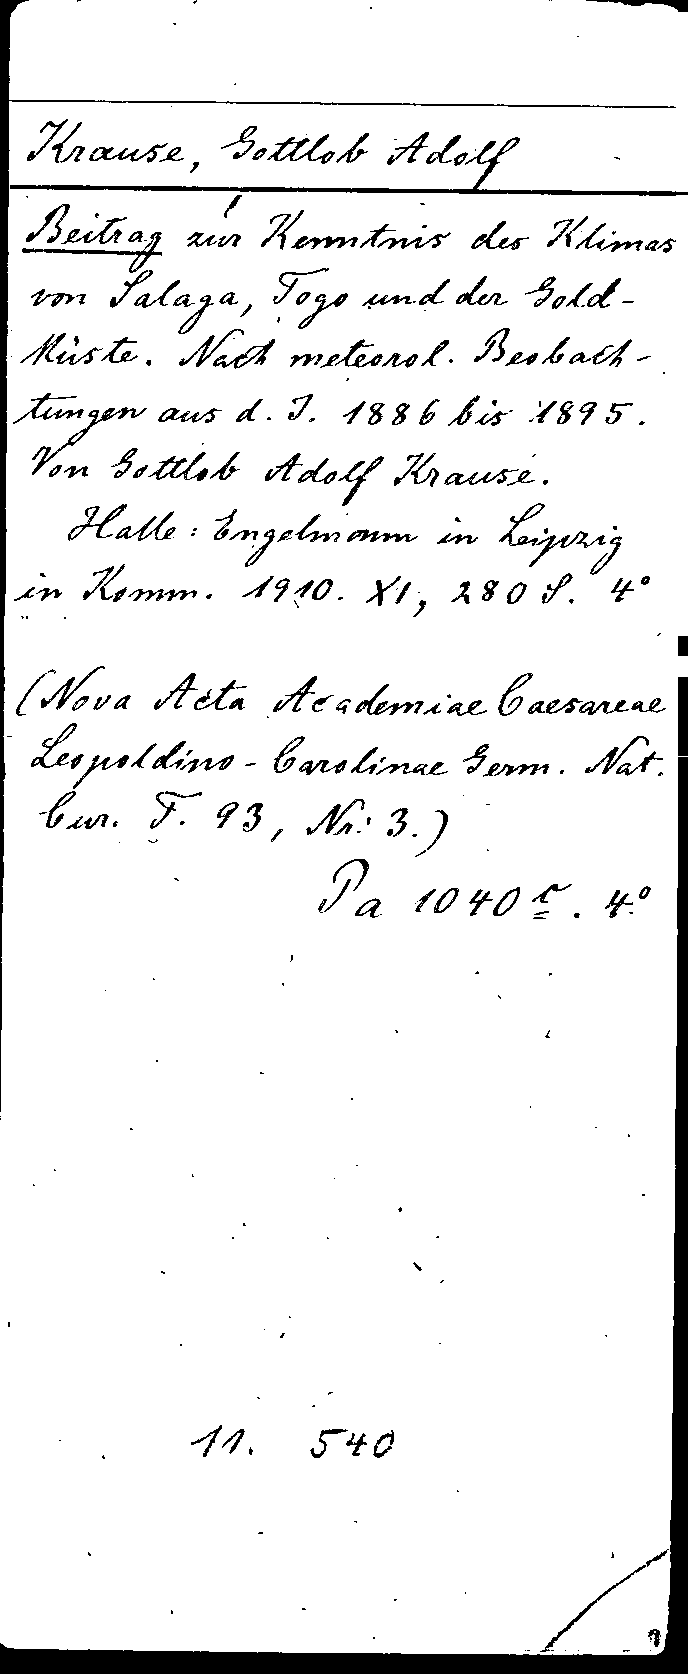 Krause, Gottlob Adolf
Beitrag zur Kenntnis des Klimas
von Salaga, Togo und der Gold-
küste. Nach meteorol. Beobach-
tungen aus d. J. 1886 bis 1895.
Von Gottlob Adolf Krause.
Halle: Engelmann in Leipzig
in Komm. 1910. XI, 280 S. 4°
(Nova Acta Academiae Caesareae
Leopoldino-Carolinae Germ. Nat.
Cur. T. 93, Nr. 3.)
Pa 1040 r. 4°
11. 540